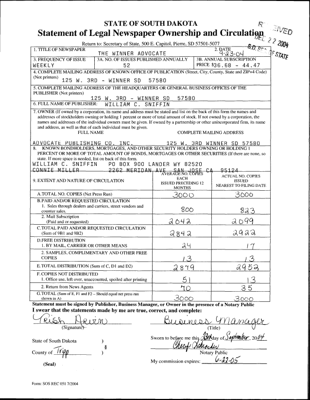 STATE OF SOUTH DAKOTA
Statement of Legal Newspaper Ownership and Circulation
Return to: Secretary of State, 500 E. Capitol, Pierre, SD 57501-5077
1. TITLE OF NEWSPAPER
THE WINNER ADVOCATE
2. DATE
9-23-04
3. FREQUENCY OF ISSUE
WEEKLY
3A. NO. OF ISSUES PUBLISHED ANNUALLY
52
3B. ANNUAL SUBSCRIPTION
PRICE $36.68 - 44.47
4. COMPLETE MAILING ADDRESS OF KNOWN OFFICE OF PUBLICATION (Street, City, County, State and ZIP+4 Code)
(Not printers)
125 W. 3RD - WINNER SD 57580
5. COMPLETE MAILING ADDRESS OF THE HEADQUARTERS OR GENERAL BUSINESS OFFICES OF THE
PUBLISHER (Not printers)
125 W. 3RD - WINNER SD 57580
6. FULL NAME OF PUBLISHER:
WILLIAM C. SNIFFIN
7. OWNER (If owned by a corporation, its name and address must be stated and list on the back of this form the names and
addresses of stockholders owning or holding 1 percent or more of total amount of stock. If not owned by a corporation, the
names and addresses of the individual owners must be given. If owned by a partnership or other unincorporated firm, its name
and address, as well as that of each individual must be given.
FULL NAME COMPLETE MAILING ADDRESS
ADVOCATE PUBLISHING CO. INC. 125 W. 3RD WINNER SD 57580
8. KNOWN BONDHOLDERS, MORTGAGES, AND OTHER SECURITY HOLDERS OWNING OR HOLDING 1
PERCENT OR MORE OF TOTAL AMOUNT OF BONDS, MORTGAGES OR OTHER SECURITIES (If there are none, so
state. If more space is needed, list on back of this form.
WILLIAM C. SNIFFIN PO BOX 900 LANDER WY 82520
CONNIE MILLER 2262 MERIDAN AVE SAN JOSE CA 95124
9. EXTENT AND NATURE OF CIRCULATION
AVERAGE NO. COPIES
EACH
ISSUED PRECEDING 12
MONTHS
ACTUAL NO. COPIES
ISSUED
NEAREST TO FILING DATE
A. TOTAL NO. COPIES (Net Press Run) 3000 3000
B. PAID AND/OR REQUESTED CIRCULATION
1. Sales through dealers and carriers, street vendors and
counter sales. 800 823
2. Mail Subscription
(Paid and or requested) 2042 2099
C. TOTAL PAID AND/OR REQUESTED CIRCULATION
(Sum of 9B1 and 9B2) 2842 2922
D. FREE DISTRIBUTION
1. BY MAIL, CARRIER OR OTHER MEANS 24 17
2. SAMPLES, COMPLIMENTARY AND OTHER FREE
COPIES 13 13
E. TOTAL DISTRIBUTION (Sum of C, D1 and D2) 2879 2952
F. COPIES NOT DISTRIBUTED
1. Office use, left over, unaccounted, spoiled after printing 51 13
2. Return from News Agents 70 35
G. TOTAL (Sum of E, F1 and F2 - Should equal net press run
shown in A) 3000 3000
Statement must be signed by Publisher, Business Manager, or Owner in the presence of a Notary Public
I swear that the statements made by me are true, correct, and complete:
Business Manager
(Signature) (Title)
State of South Dakota )
County of Tripp )
(Seal)
Sworn to before me this day of September, 2004
Notary Public
My commission expires: 6-22-05
Form: SOS REC 051 7/2004